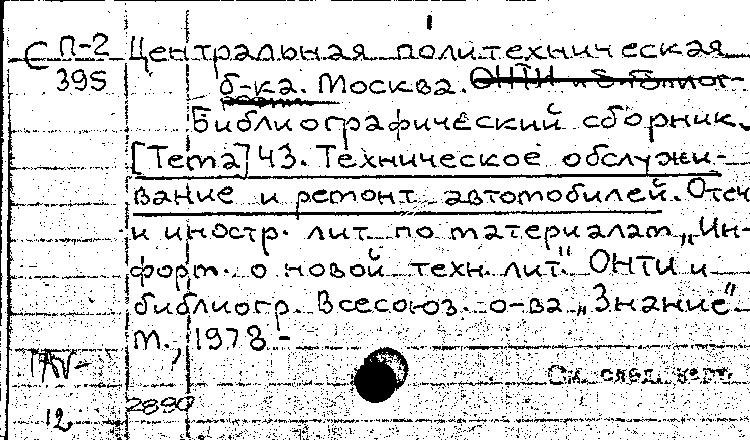 С П-2 Центральная политехническая
395 б-ка. Москва. ОНТИ и библиог-
Библиографический сборник.
[Тема] 43. Техническое обслужи-
вание и ремонт автомобилей. Отеч
и иностр. лит. по материалам „Ин-
форм. о новой техн. лит." ОНТИ и
библиогр. Всесоюз. о-ва „Знание"
М., 1978-
См. след. карт.
12 2890